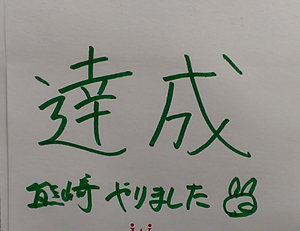 達成
崎 やりました